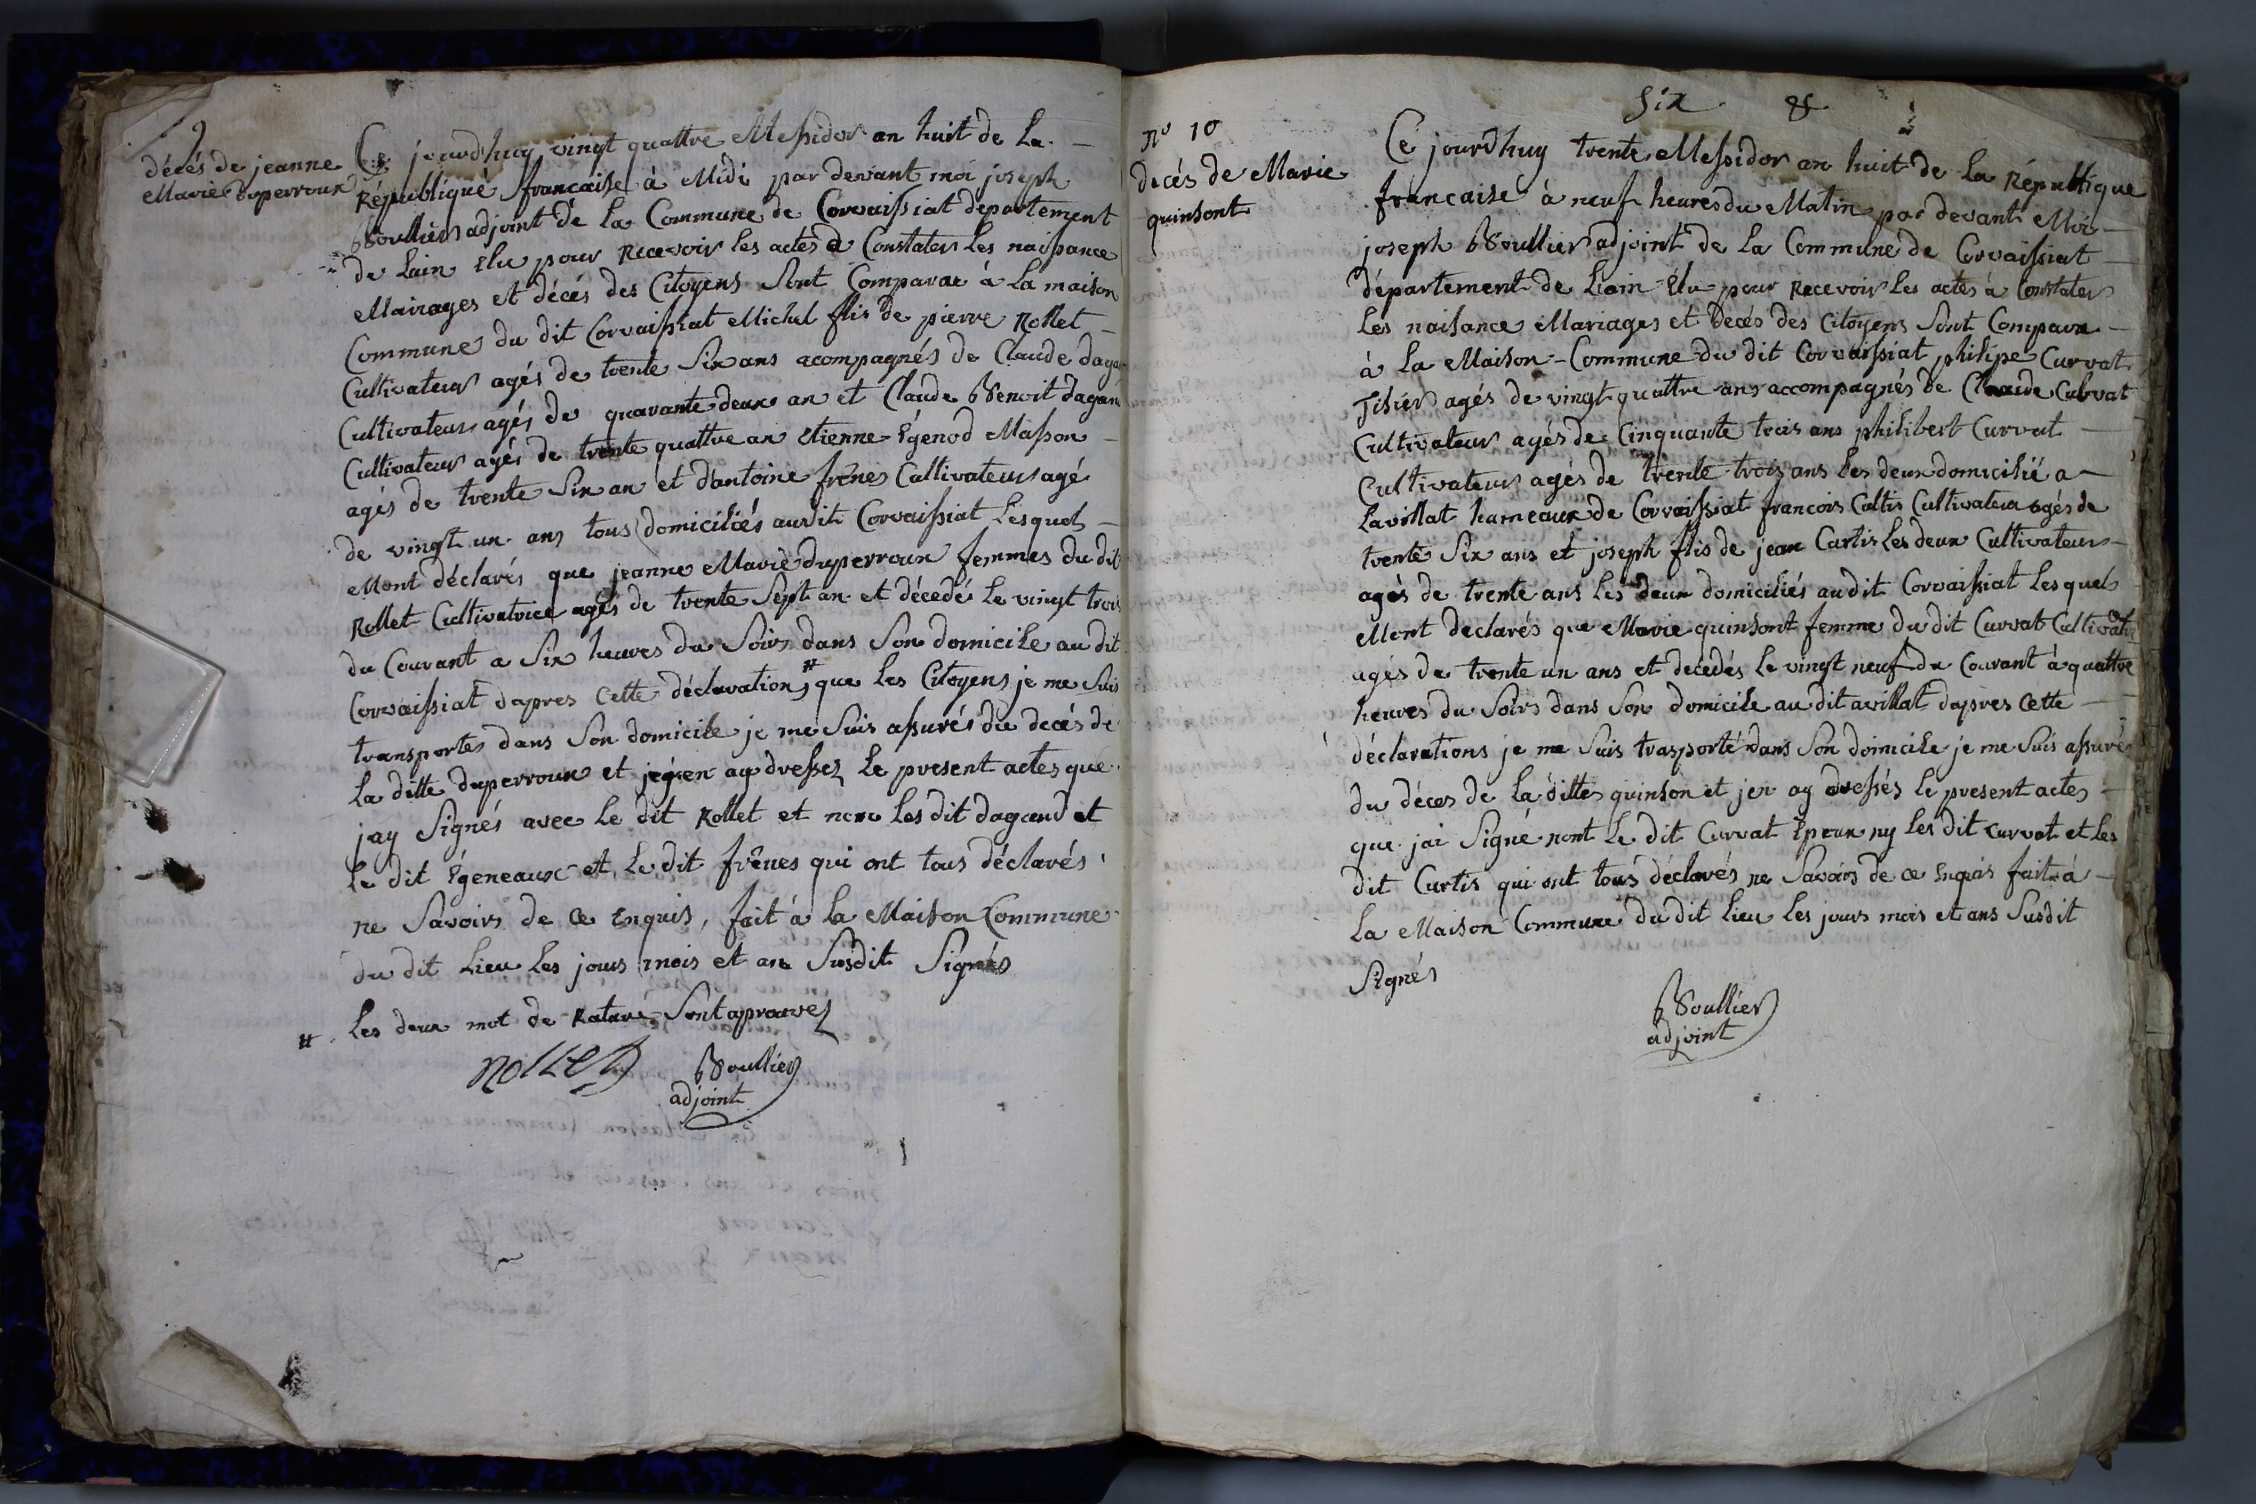 9
décés de jeanne
Marie duperroux
Ce jourdhuy vingt quattre Messidor an huit de La
Républiqué francaise à Midi par devant moi joseph
Boullier adjoint de La Commune de Corvaissiat departement
de Lain Elu pour Recevoir les actes a Constater Les naissance
Mairages et décés des Citoyens Sont Comparae à La maison
Commune du dit Corvaissiat Michel flis de pierre Rollet
Cultivateur agés de trente Six ans acompagnés de Claude
Cultivateur agés de quarante deux an et Claude Benoit
Cultivateur agés de trente quattre an Etienne Egenod Masson
agés de trente Six an et dantoine frênes Cultivateur agé
de vingt un ans tous domiciliés audit Corvaissiat Lesquels
Mont déclarés que jeanne Marie duperroux femmes du dit
Rollet Cultivatrice agés de trente Sept an et décedé Le vingt trois
du Courant a Six heures du Soir dans Son domicile au dit
Corvaissiat dapres Cette déclaration # que les Citoyens je me Suis
transporter dans Son domicile je me Suis assurés du decés de
La ditte duperroux et en ay dressez Le present actes que
jay Signés avec Le dit Rollet et non Les dit dagand et
Le dit Egeneaux et Le dit frênes qui ont tous déclarés
ne Savoir de Ce Enquis, fait à La Maison Commune
du dit Lieu Les jours mois et an Susdit Signés
# Les deux mot de Raturé Sont aprouvez
Rollet Boullier
adjoint
Six
No 10
decés de Marie
quinsont
Ce jourdhuy trente Messidor an huit de La Républlique
francaise à neuf heures du Matin par devant Moi
joseph Boullier adjoint de La Commune de Corvaissiat
département de Lain Elu pour Recevoir Les actes à Constater
Les naisance Mariages et Decés des Citoyens Sont Comparu
à La Maison Commune du dit Corvaissiat philipe Curvat
Tisier agés de vingt quattre ans accompagnés de Claude Curvat
Cultivateur agés de Cinquante trois ans philibert Curvat
Cultivateur agés de trente trois ans Les deux domicilié a
Lavillat hameaux de Corvaissiat francois Cultis Cultivateur agés de
trente Six ans et joseph flis de jean Curtis Les deux Cultivateur
agés de trente ans Les deux domiciliés au dit Corvaissiat Lesquels
Mont declarés que Marie quinsont femme du dit Curvat
agés de trente un ans et decedés Le vingt neuf du Courant à quattre
heures du Soir dans Son domicile au dit avillat dapres Cette
déclarations je me Suis trasporté dans Son domicile je me Suis assuré
du déces de La ditte quinson et jen ay dressés Le present actes
que jai Signé nont Le dit Curvat Epoux ny Les dit Curvat et Les
dit Curtis qui ont tous déclarés ne Savoir de ce Enquis fait à
La Maison Commune du dit Lieu Les jours mois et ans Susdit
Signés
Boullier
adjoint